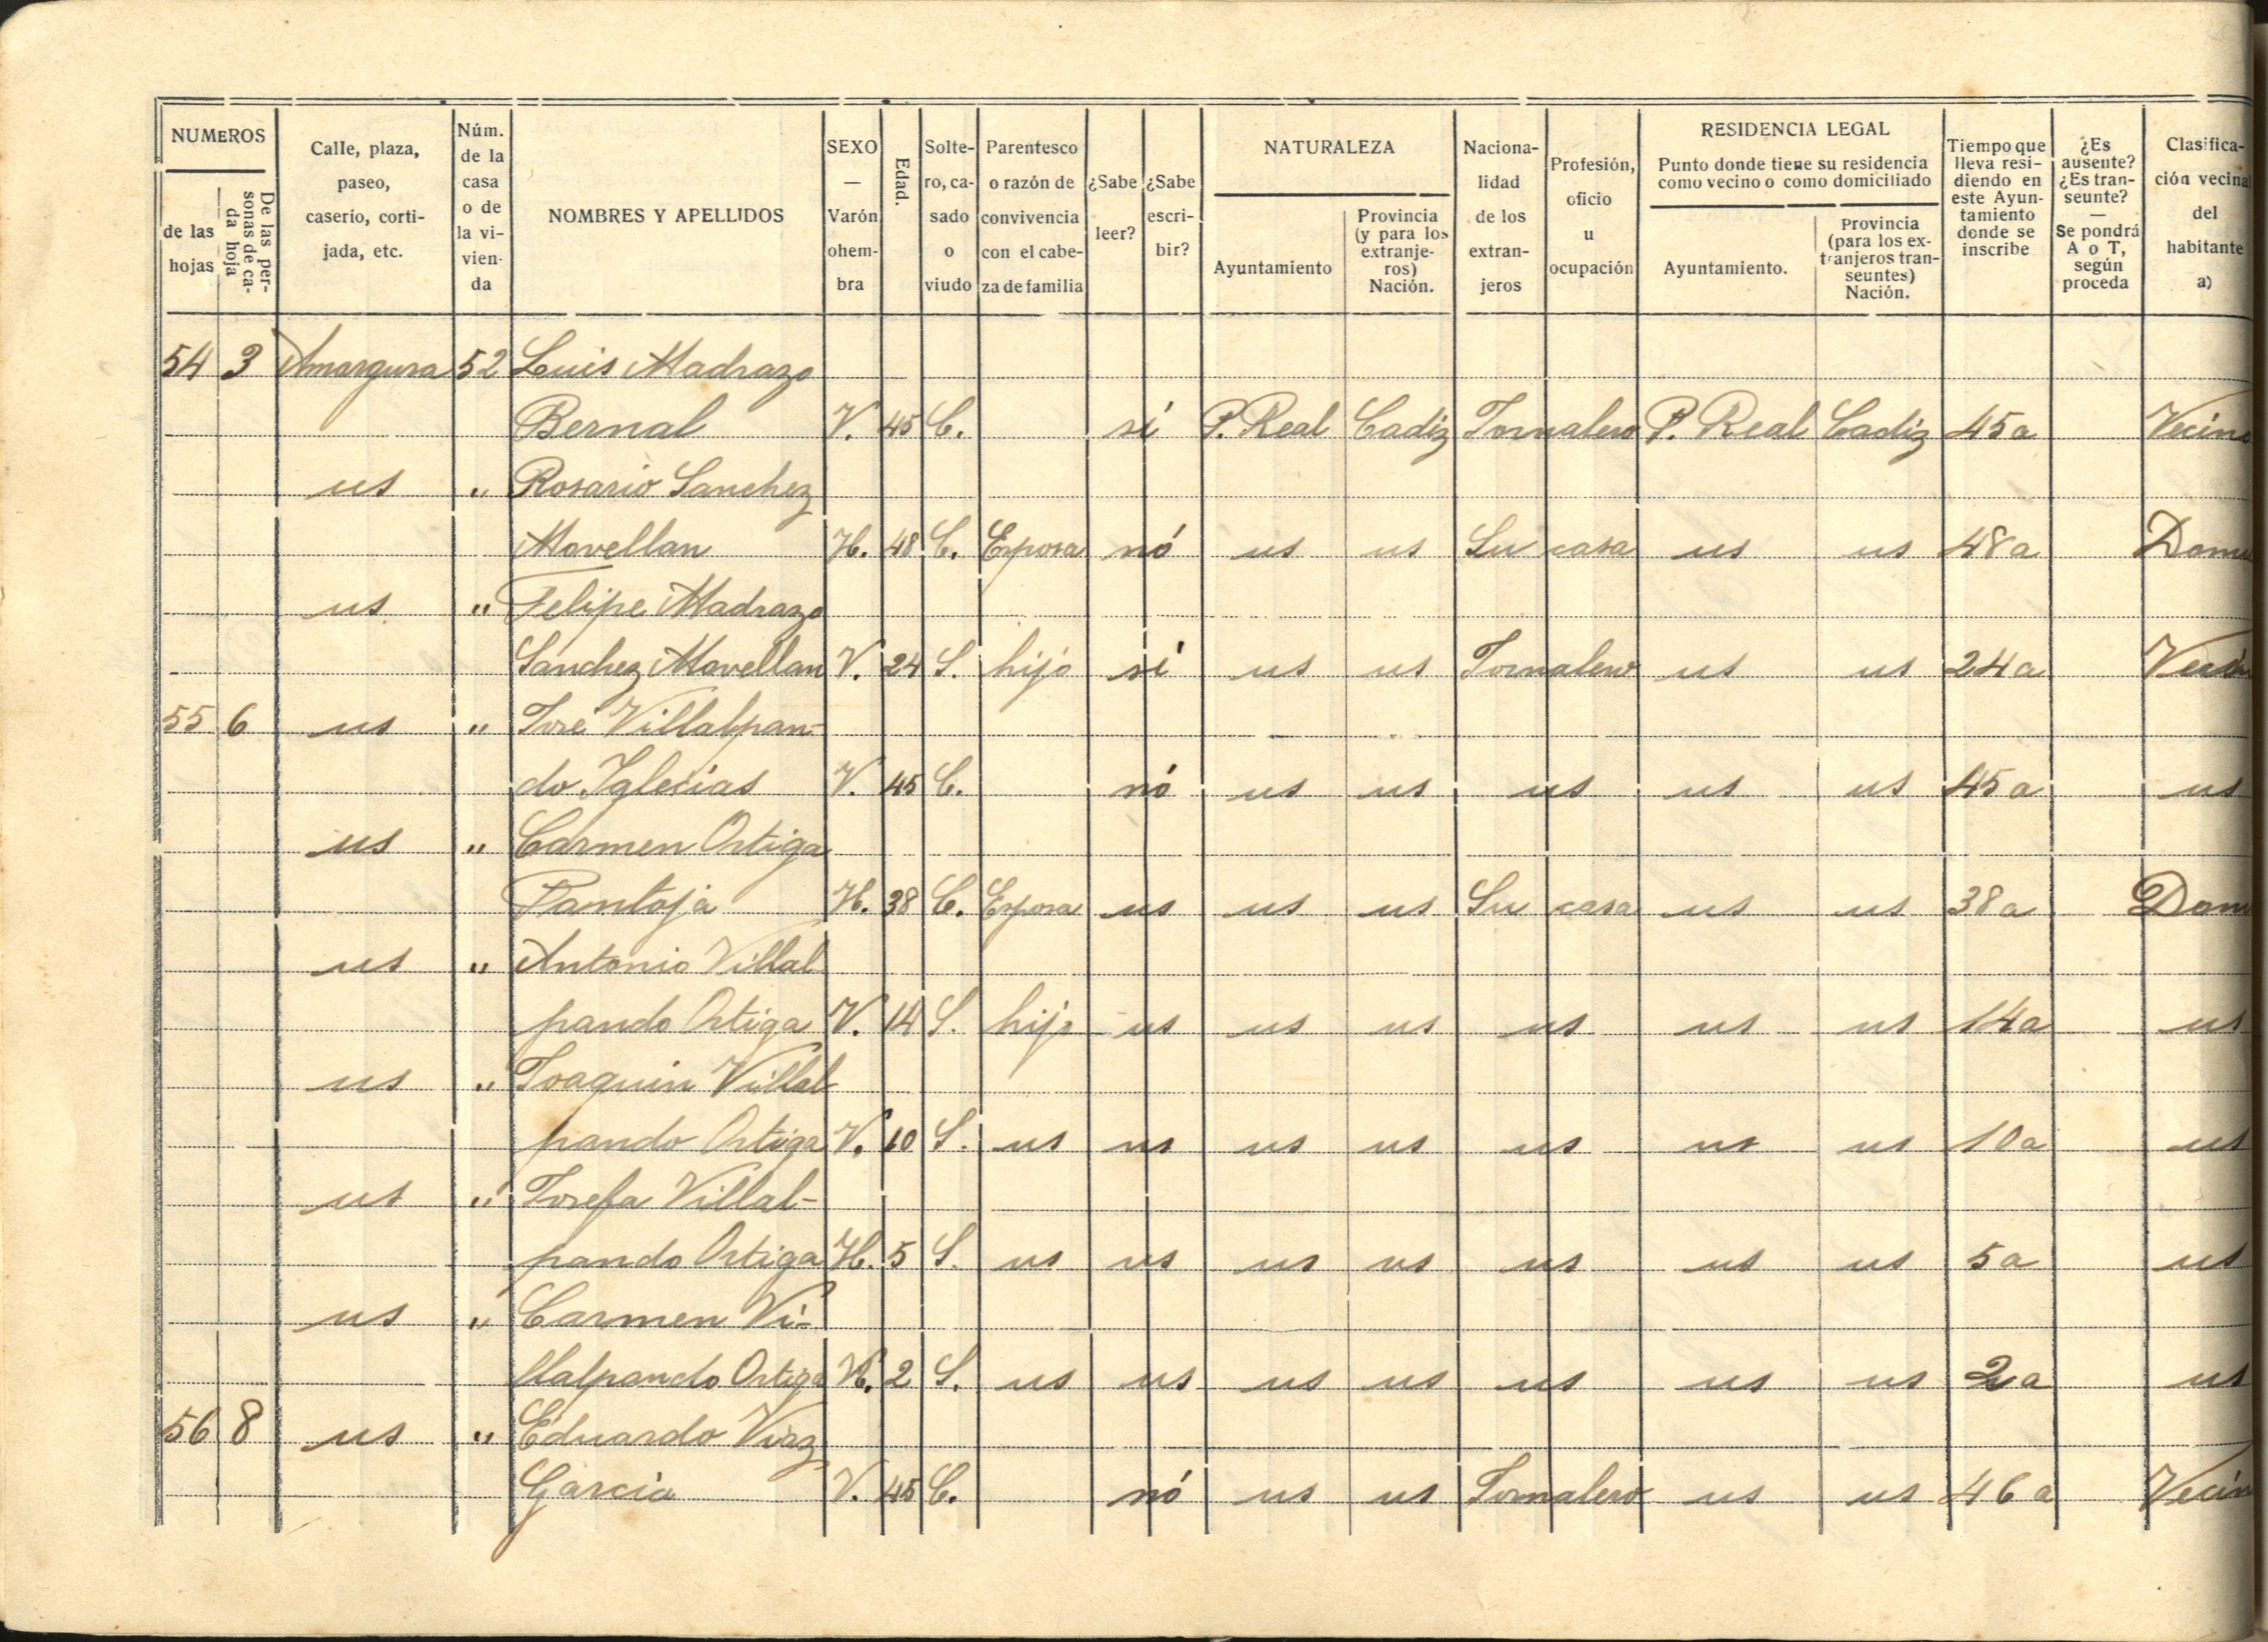 NUMEROS
de las hojas
De las personas de cada hoja
Calle, plaza, paseo, caserío, cortijada, etc.
Núm. de la casa o de la vivienda
NOMBRES Y APELLIDOS
SEXO — Varón o hembra
Edad.
Soltero, casado o viudo
Parentesco o razón de convivencia con el cabeza de familia
¿Sabe leer?
¿Sabe escribir?
NATURALEZA
Ayuntamiento
Provincia (y para los extranjeros) Nación.
Nacionalidad de los extranjeros
Profesión, oficio u ocupación
RESIDENCIA LEGAL
Punto donde tiene su residencia como vecino o como domiciliado
Ayuntamiento.
Provincia (para los extranjeros transeuntes) Nación.
Tiempo que lleva residiendo en este Ayuntamiento donde se inscribe
¿Es ausente? ¿Es transeunte? — Se pondrá A o T, según proceda
Clasificación vecinal del habitante a)
54 3 Amargura 52 Luis Madrazo
Bernal V. 45 C. sí P. Real Cadiz Jornalero P. Real Cadiz 45 a Vecino
us " Rosario Sanchez
Movellan H. 48 C. Esposa nó us us Su casa us us 48 a Domi
us " Felipe Madrazo
Sanchez Movellan V. 24 S. hijo sí us us Jornalero us us 24 a Vecin
55 6 us " José Villalpan-
do Iglesias V. 45 C. nó us us us us us 45 a us
us " Carmen Ortiga
Pantoja H. 38 C. Esposa us us us Su casa us us 38 a Dom
us " Antonio Villal
pando Ortiga V. 14 S. hijo us us us us us us 14 a us
us " Joaquin Villal
pando Ortiga V. 10 S. us us us us us us us 10 a us
us " Josefa Villal-
pando Ortiga H. 5 S. us us us us us us us 5 a us
us " Carmen Vi-
llalpando Ortiga H. 2 S. us us us us us us us 2 a us
56 8 us " Eduardo
Garcia V. 45 C. nó us us Jornalero us us 46 a Vecin